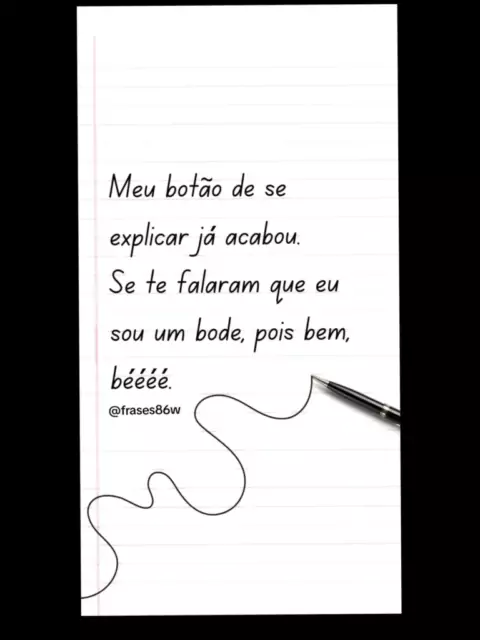 Meu botão de se
explicar já acabou.
Se te falaram que eu
sou um bode, pois bem,
béééé.
@frases86w